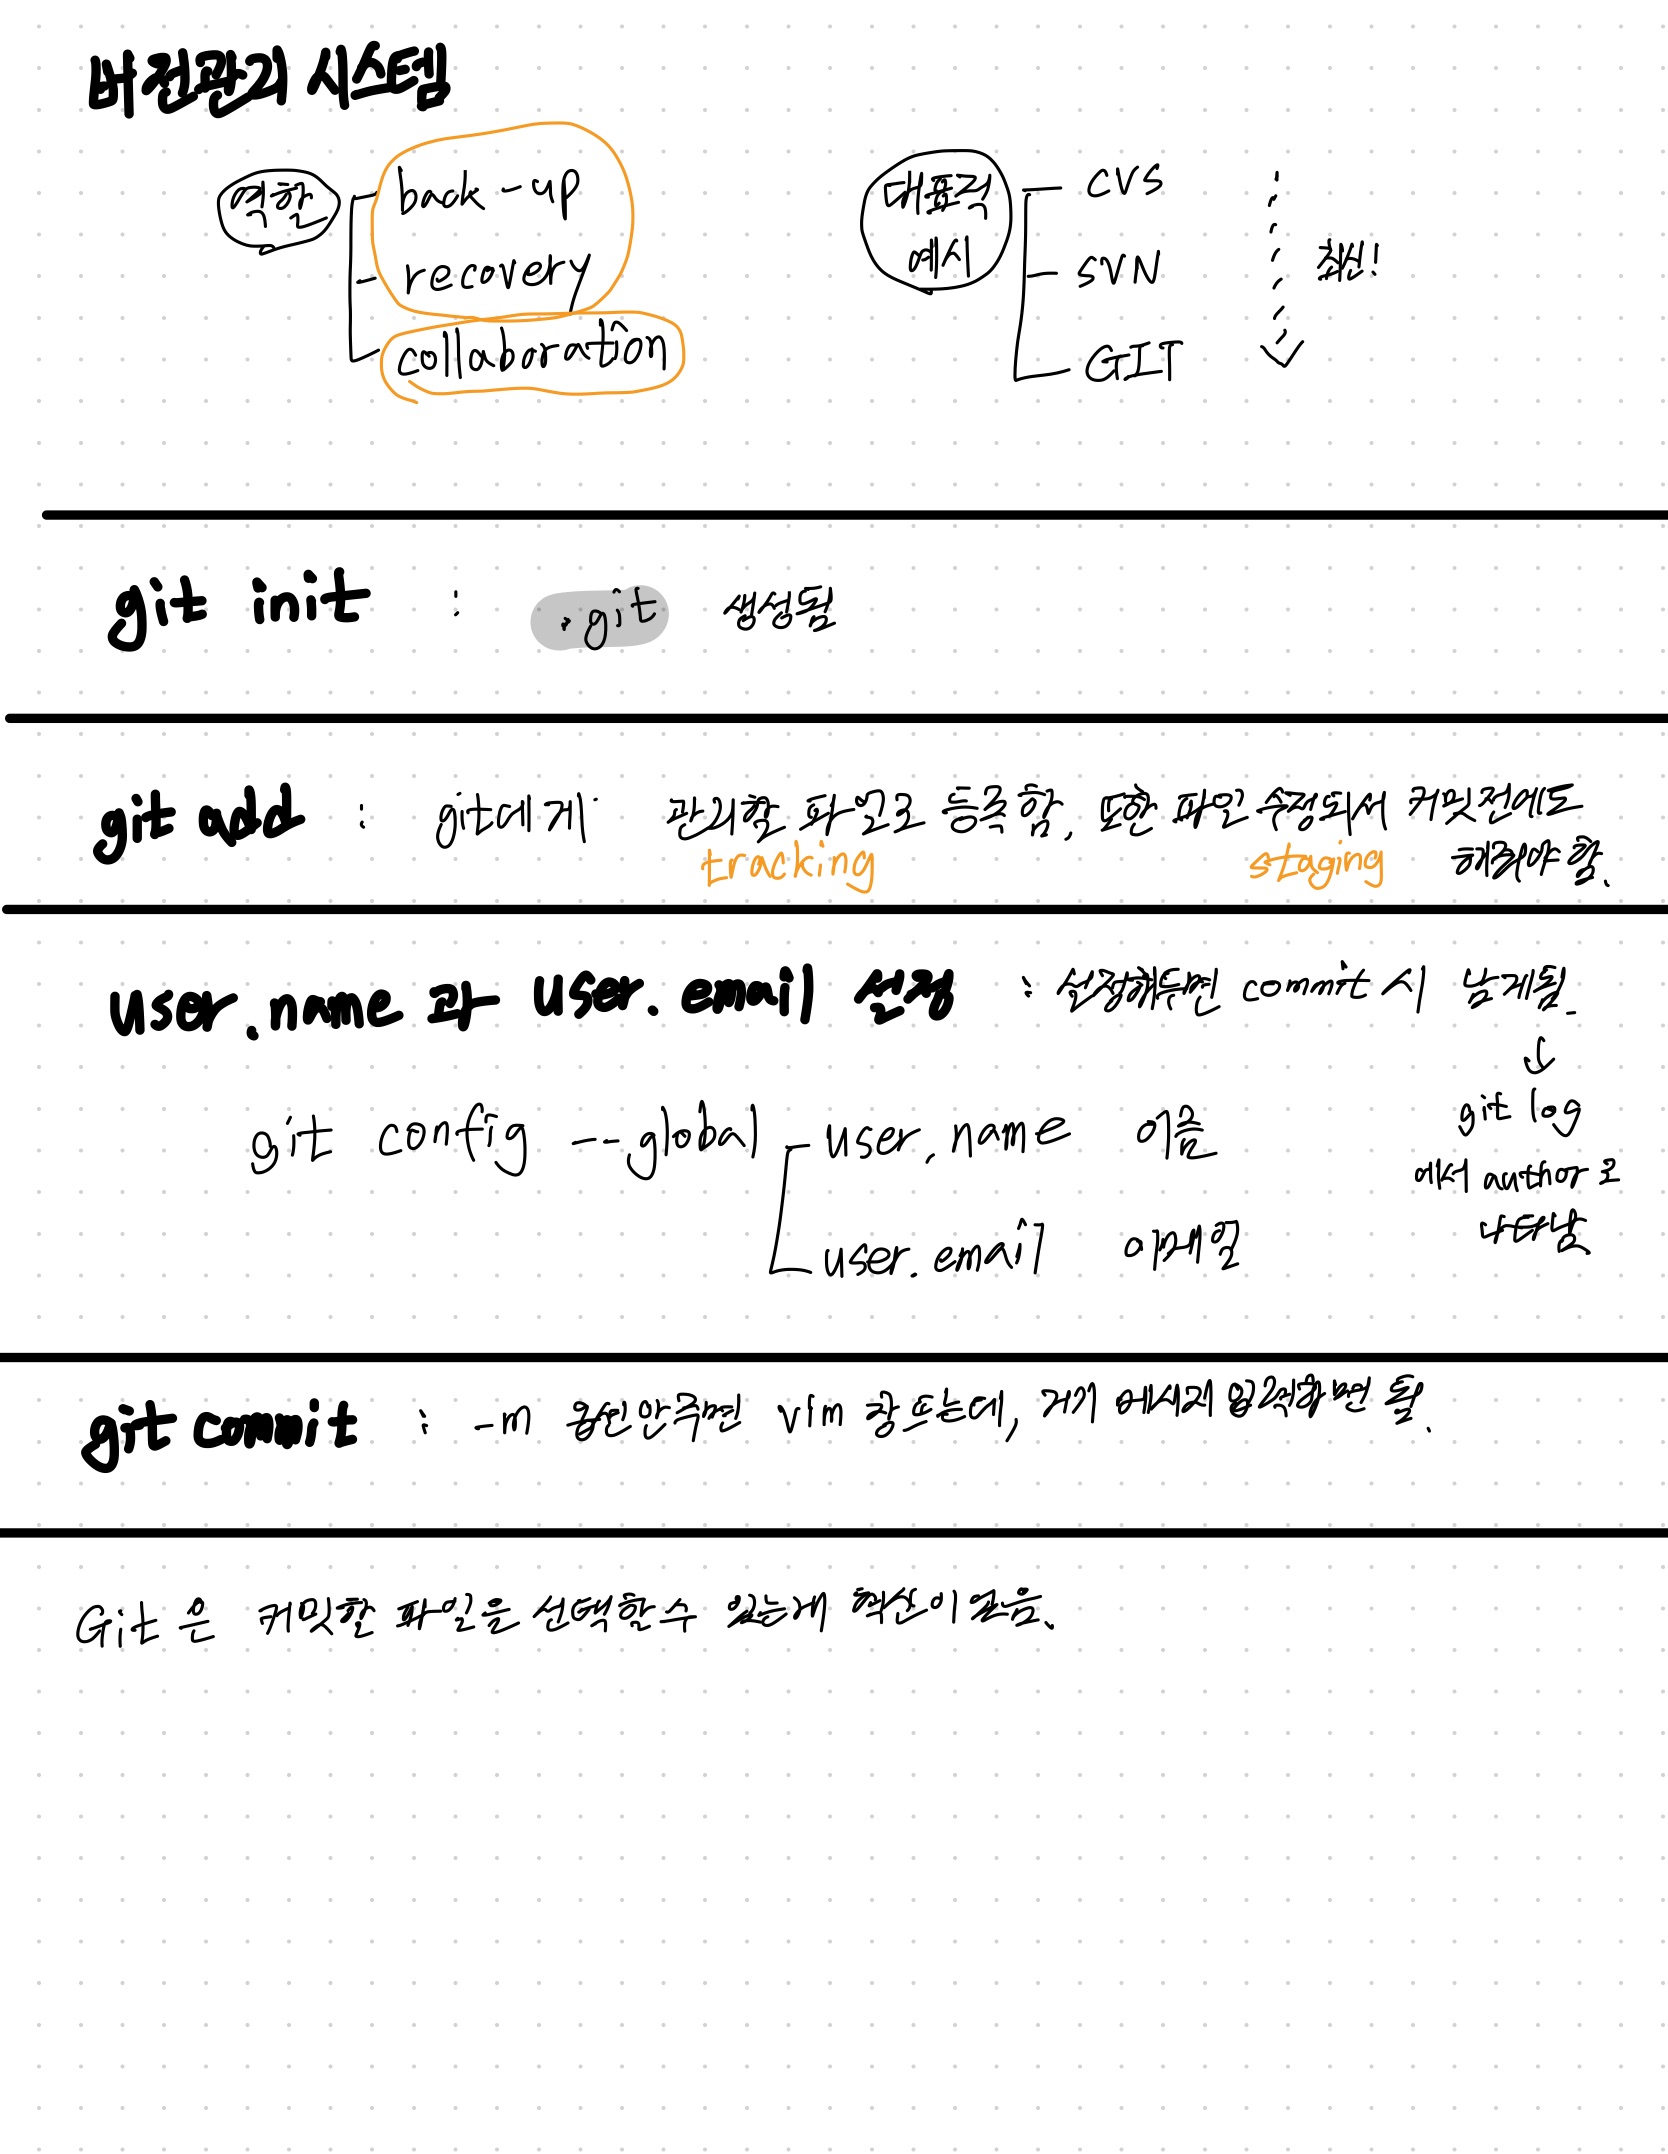 버전관리 시스템
역할
back-up
recovery
collaboration
대표적
예시
CVS
SVN
GIT
최신!
git init : .git 생성됨
git add : git에게 관리할 파일로 등록함. 또한 파일 수정되서 커밋전에도
tracking staging 해줘야 함.
user.name 과 user.email 설정 : 설정해두면 commit 시 남게됨.
git config --global user.name 이름
user.email 이메일
git log
에서 author로
나타남
git commit : -m 옵션안주면 vim 창뜨는데, 거기 메시지 입력하면 됨.
Git 은 커밋할 파일을 선택할수 있는게 혁신이었음.